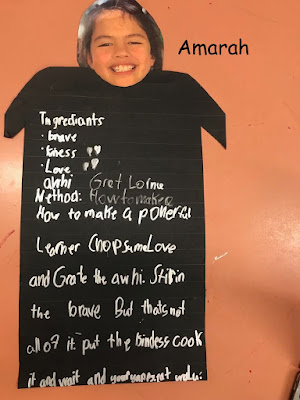 Amarah
Ingrediants
· brave
· kiness
· Love
awhi Gret Lornr
Method: How to make a
How to make a powerful
Learner Chop some Love
and Grate the awhi. Stir in
the brave But thats not
all of it. put the bindess cook
it and wait and your